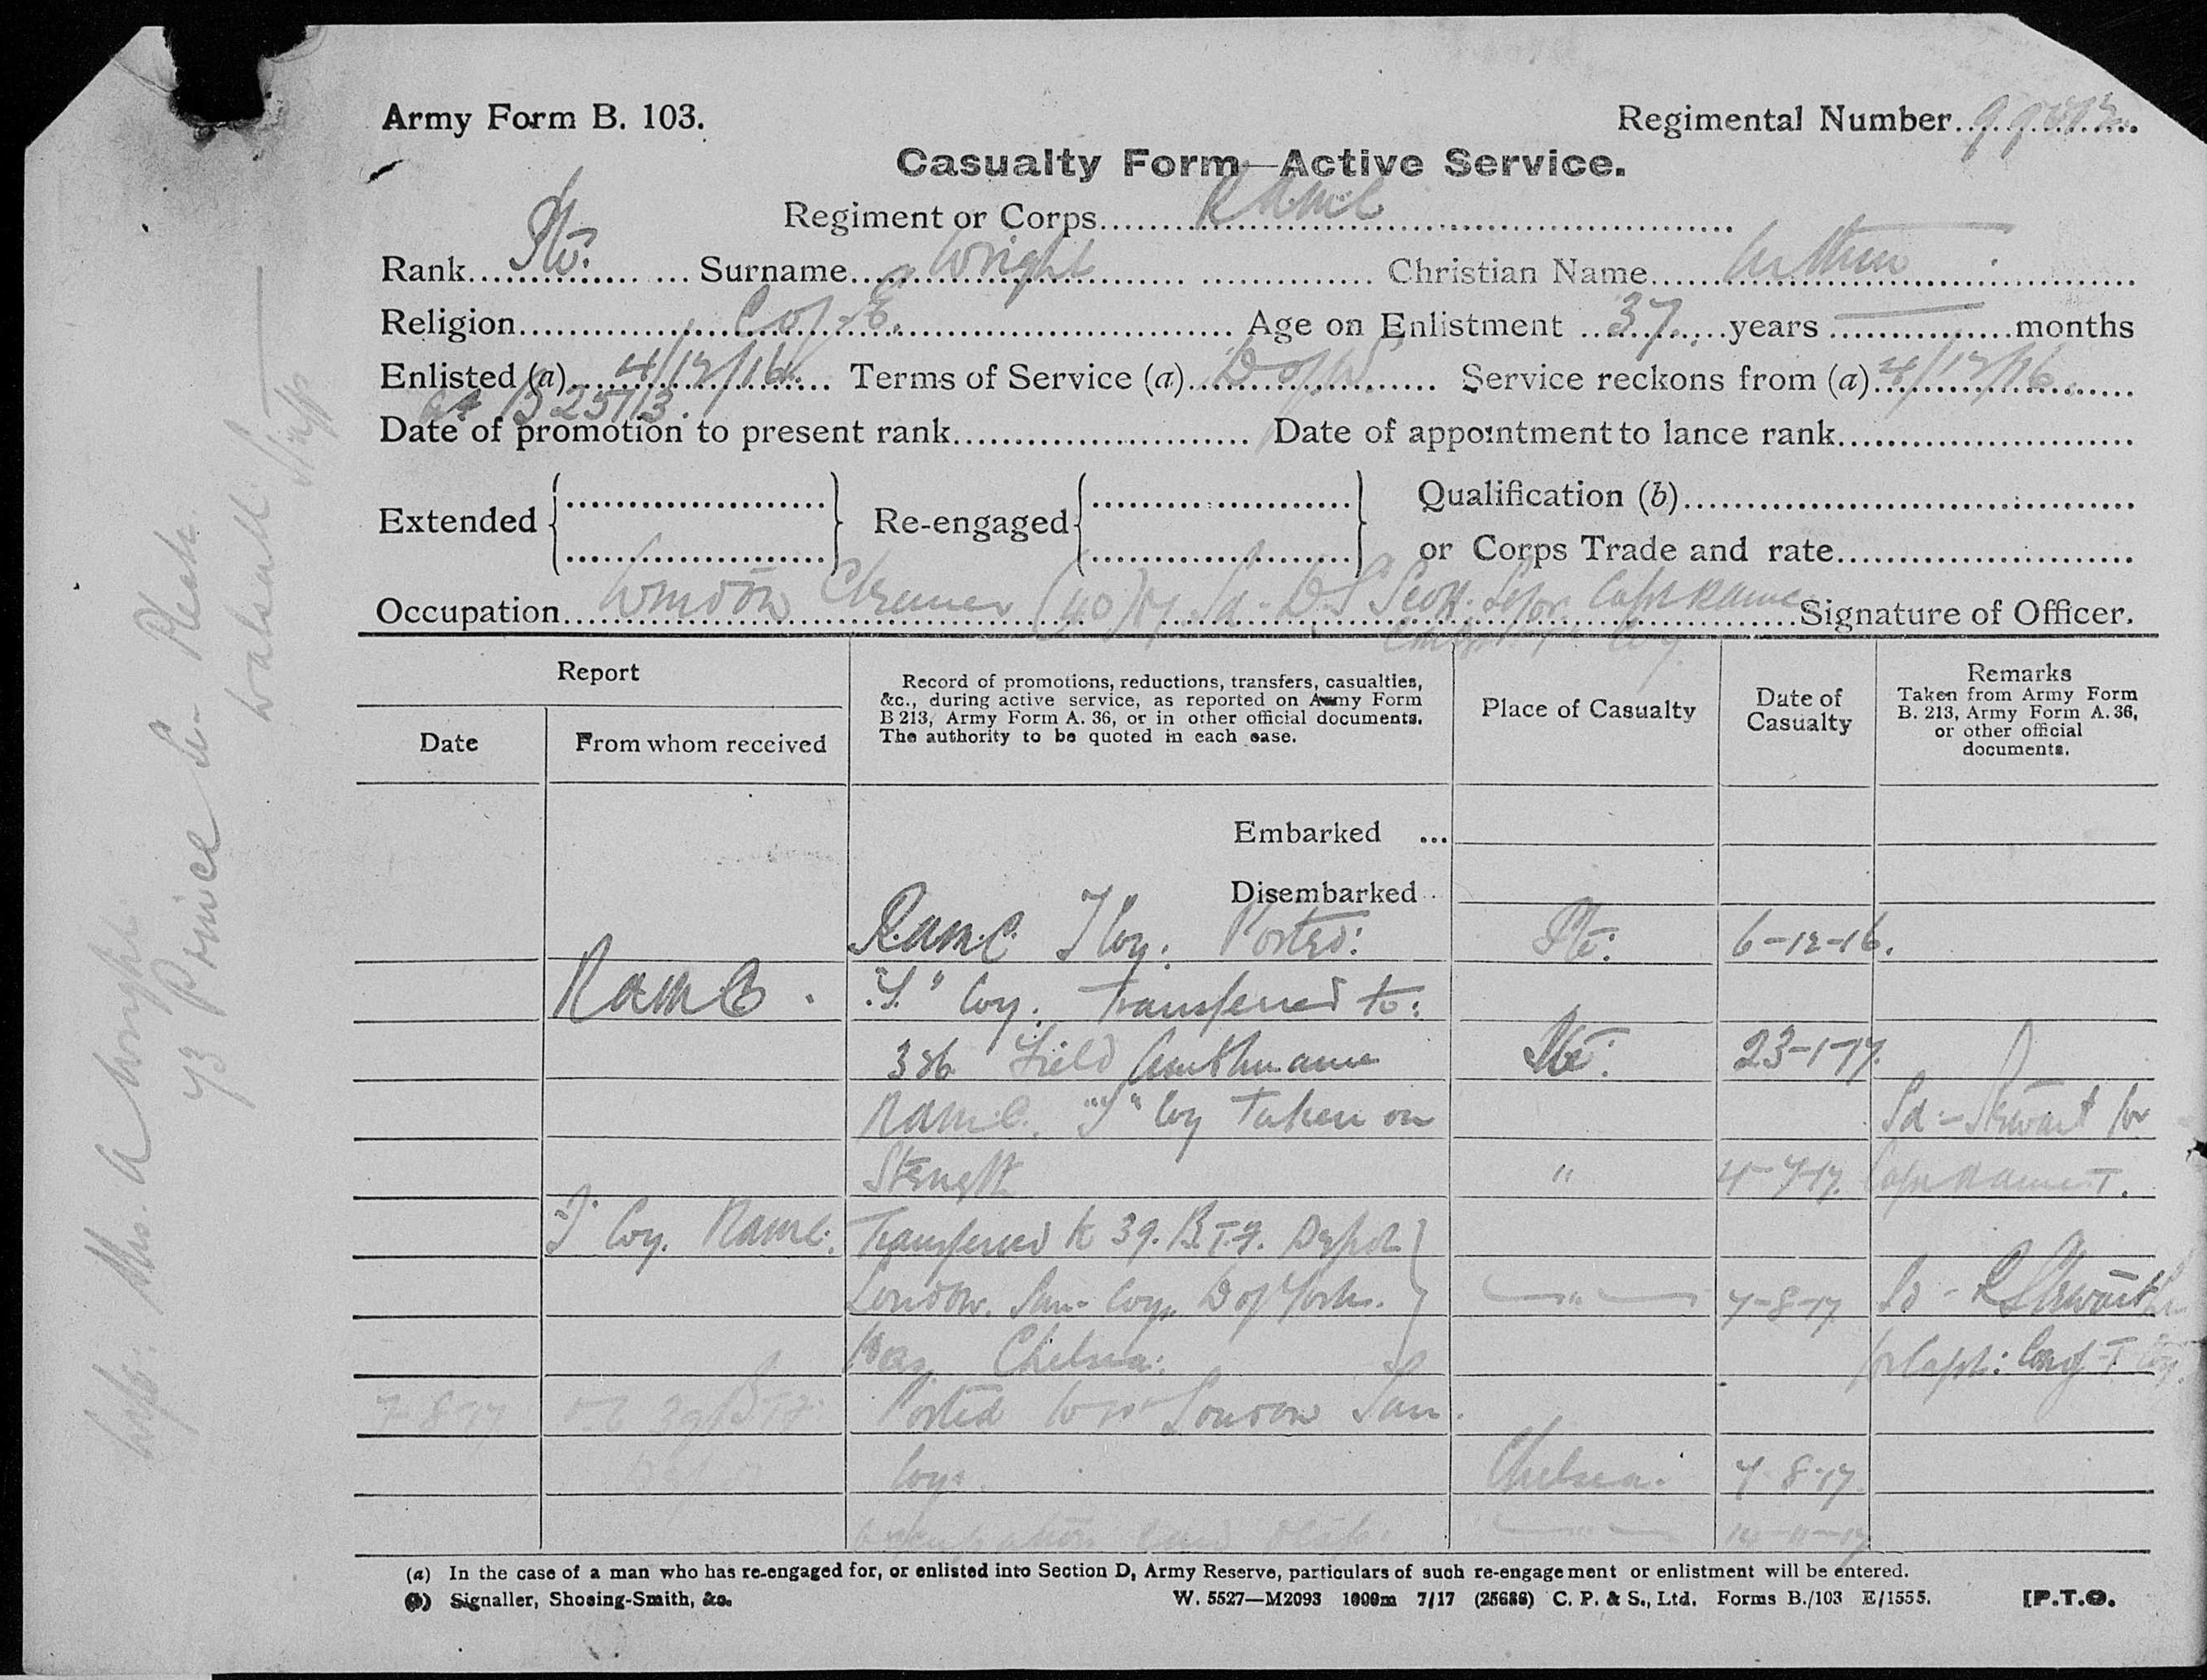 Army Form B. 103. Regimental Number
Casualty Form—Active Service.
Regiment or Corps RAMC
Rank Pte. Surname Wright Christian Name Arthur
Religion C of E. Age on Enlistment 37 years — months
Enlisted (a) 4/12/16 Terms of Service (a) D of W Service reckons from (a) 4/12/16
B 25113.
Date of promotion to present rank Date of appointment to lance rank
Extended Re-engaged Qualification (b)
or Corps Trade and rate
Occupation Window Cleaner (40) Sd - D S Scott. Capt RAMC Signature of Officer.
Coy.
Report
Date From whom received
Record of promotions, reductions, transfers, casualties, &c., during active service, as reported on Army Form B 213, Army Form A. 36, or in other official documents. The authority to be quoted in each case.
Place of Casualty
Date of Casualty
Remarks
Taken from Army Form B. 213, Army Form A. 36, or other official documents.
Embarked ...
Disembarked
R.A.M.C. Coy. Posted: Pte: 6-12-16.
RAMC. Coy. Transferred to:
Field Ambulance Pte: 23-1-17.
RAMC. Coy Taken on Sd - Stewart for
Strength " Capt RAMC T.
Coy. RAMC. Transferred to 39. B.T.F. Depot
London. San. Coy. D of Yorks. — " — 7-8-17 Sd - R Stewart
Chelsea: for Capt: Comg T Coy.
7-8-17 39 B T F Posted London San.
Coy. Chelsea. 7-8-17
(a) In the case of a man who has re-engaged for, or enlisted into Section D, Army Reserve, particulars of such re-engagement or enlistment will be entered.
(b) Signaller, Shoeing-Smith, &c. W. 5527—M2093 1000m 7/17 (25688) C. P. & S., Ltd. Forms B./103 E/1555. [P.T.O.
Wife: Mrs. A Wright.
73 Prince St. Pleck.
Walsall
Staffs